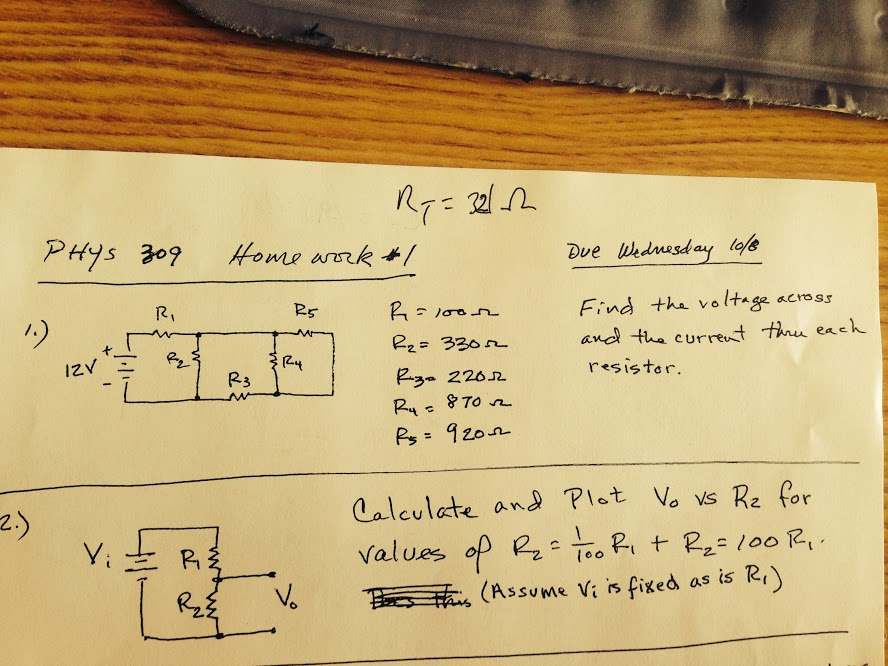 R_T = 321 Ω
PHYS 309 Homework #1
Due Wednesday 10/8
1.)
R₁
R₅
12V
+
-
R₂
R₄
R₃
R₁ = 100 Ω
R₂ = 330 Ω
R₃ = 220 Ω
R₄ = 870 Ω
R₅ = 920 Ω
Find the voltage across
and the current thru each
resistor.
2.)
Vi
R₁
R₂
Vo
Calculate and Plot Vo vs R₂ for
values of R₂ = 1/100 R₁ + R₂ = 100 R₁.
(Assume Vi is fixed as is R₁)